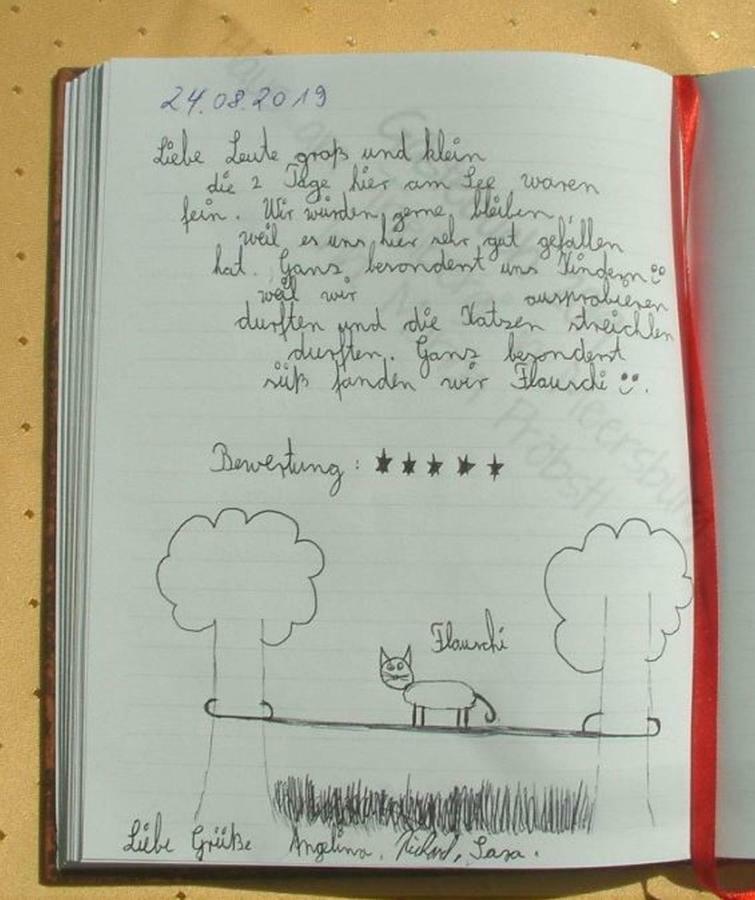 24.08.2019
Liebe Leute groß und klein
die 2 Tage hier am See waren
fein. Wir würden gerne bleiben,
weil es uns hier sehr gut gefallen
hat. Ganz besonderst uns Kindern
weil wir ausprobieren
durften und die Katzen streichlen
durften. Ganz besonderst
süß fanden wir Flauschi.
Bewertung: ★★★★★
Flauschi
Liebe Grüße Angelina, Richard, Sara.